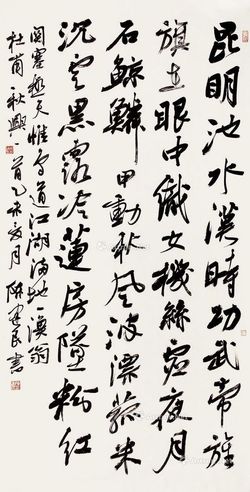 昆明池水漢時功武帝旌
旗在眼中織女機絲虛夜月
石鯨鱗甲動秋風波漂菰米
沉雲黑露冷蓮房墜粉紅
関塞極天惟鳥道江湖滿地一漁翁
杜甫秋興一首乙未月民書